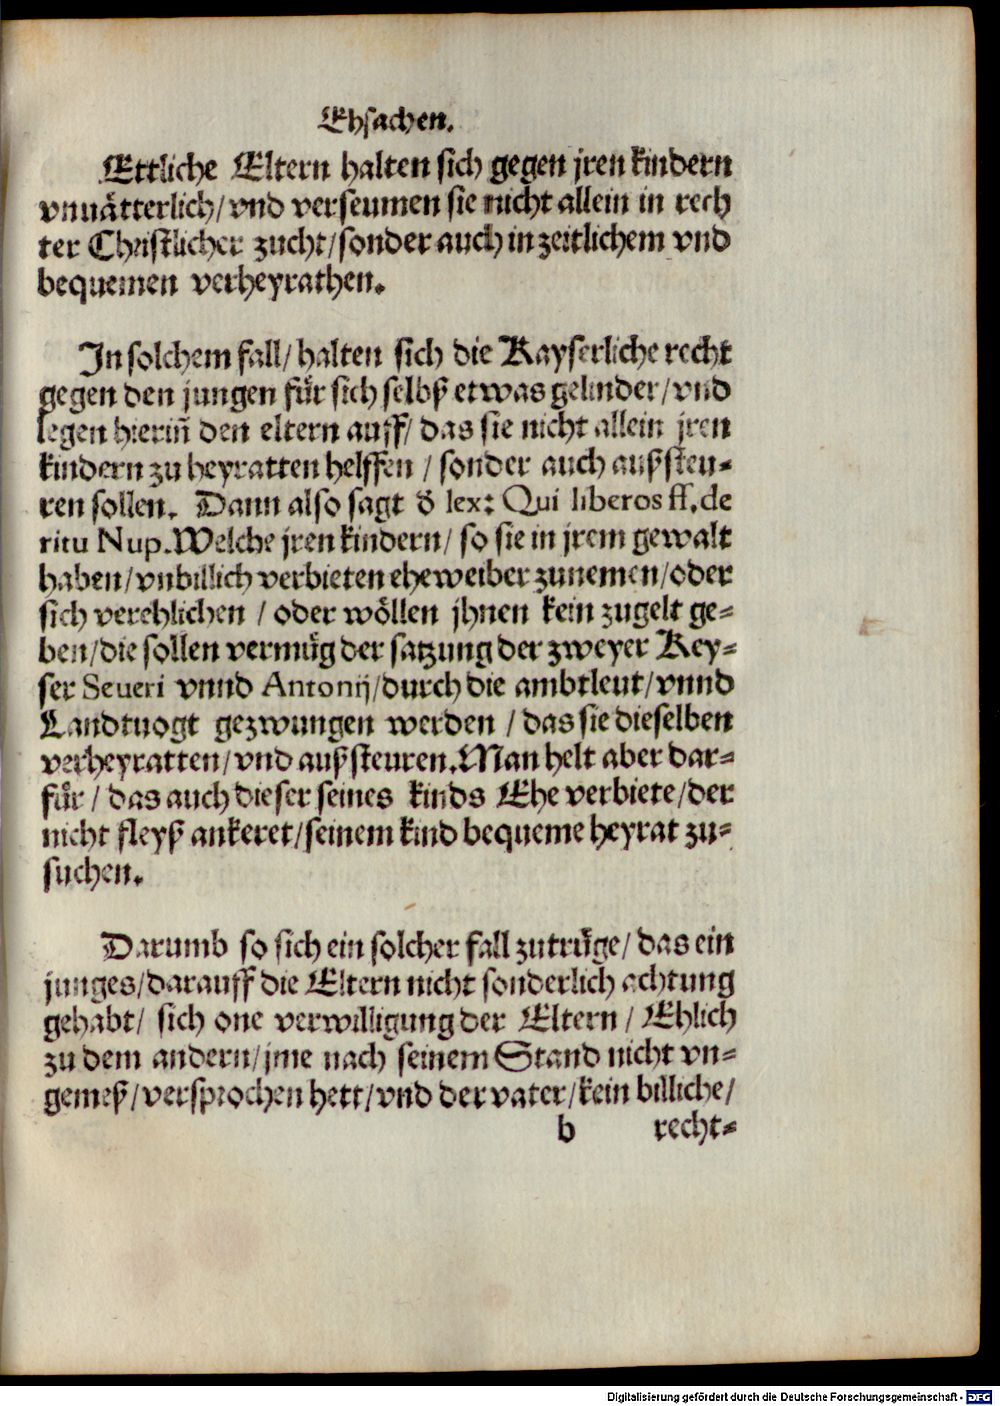 Ehsachen.
Ettliche Eltern halten sich gegen jren kindern
vnuätterlich/vnd verseumen sie nicht allein in rech
ter Christlicher zucht/sonder auch in zeitlichem vnd
bequemen verheyrathen.
In solchem fall/halten sich die Kayserliche recht
gegen den jungen für sich selbß etwas gelinder/vnd
legen hieriñ den eltern auff/das sie nicht allein jren
kindern zu heyratten helffen / sonder auch außsteu⸗
ren sollen. Dann also sagt ð lex: Qui liberos ff. de
ritu Nup. Welche jren kindern/so sie in jrem gewalt
haben/vnbillich verbieten eheweiber zunemen/oder
sich verehlichen / oder wöllen jhnen kein zugelt ge⸗
ben/die sollen vermüg der satzung der zweyer Key⸗
ser Seueri vnnd Antonij/durch die ambtleut/vnnd
Landtuogt gezwungen werden / das sie dieselben
verheyratten/vnd außsteuren. Man helt aber dar⸗
für / das auch dieser seines kinds Ehe verbiete/der
nicht fleyß ankeret/seinem kind bequeme heyrat zu⸗
suchen.
Darumb so sich ein solcher fall zutrüge/das ein
junges/darauff die Eltern nicht sonderlich achtung
gehabt/ sich one verwilligung der Eltern / Ehlich
zu dem andern/jme nach seinem Stand nicht vn⸗
gemeß/versprochen hett/vnd der vater/kein billiche/
b recht⸗
Digitalisierung gefördert durch die Deutsche Forschungsgemeinschaft - DFG